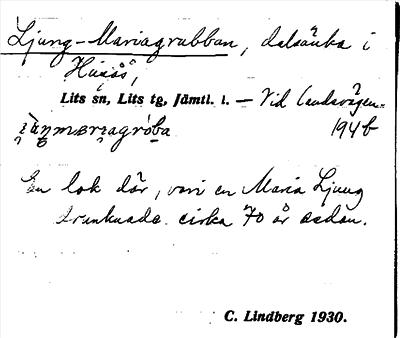 Ljung-Mariagrubban, dalsänka i
Husås,
Lits sn, Lits tg, Jämtl. l. – Vid landsvägen.
194b
En lok där, vari en Maria Ljung
drunknade cirka 70 år sedan.
C. Lindberg 1930.